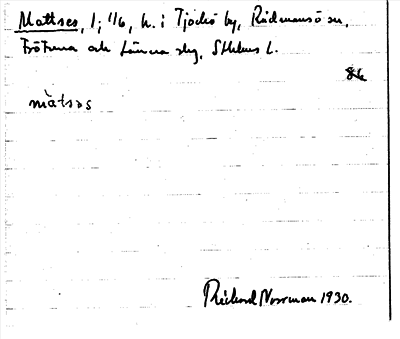 Mattses, 1; 1/6, h. i Tjockö by, Rådmansö sn,
Frötuna och Länna skg, Sthlms l.
86
màtsəs
Rickard Norrman 1930.